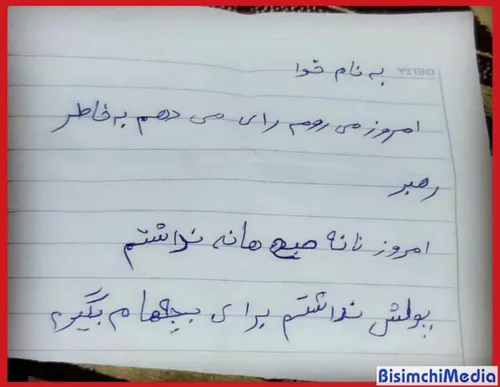 به نام خوا
DELTA
امروز می روم رای می دهم به خاطر
رهبر
امروز نانه صبح هانه نداشتم
پولش نداشتم برای بچهام بگیرم
BisimchiMedia